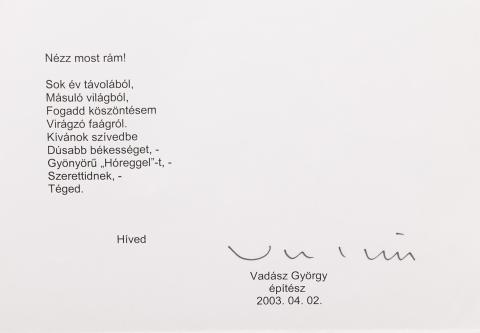 Nézz most rám!
Sok év távolából,
Másuló világból,
Fogadd köszöntésem
Virágzó faágról.
Kívánok szívedbe
Dúsabb békességet, -
Gyönyörű „Hóreggel"-t, -
Szerettidnek, -
Téged.
Híved
Vadász György
építész
2003. 04. 02.